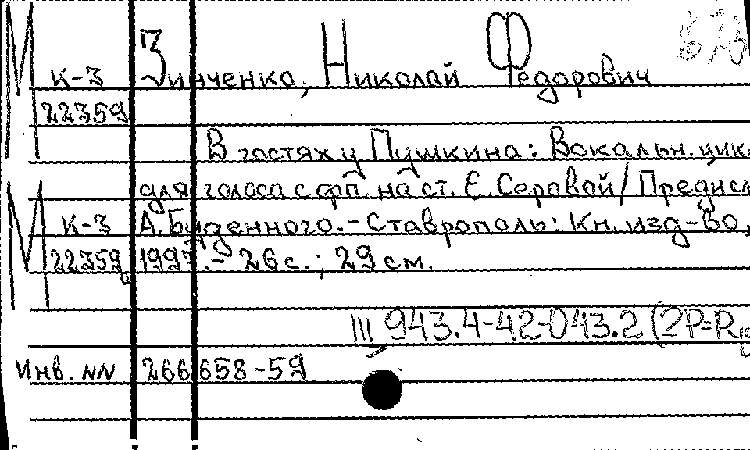 М К-3 Зинченко, Николай Федорович
22359
В гостях у Пушкина: Вокальн. цикл
М для голоса с фп. на ст. Е. Серовой / Предисл.
К-3 А. Буденного. - Ставрополь: Кн. изд-во,
22359а 1997. - 26 с.; 29 см.
III 943.4-42-043.2 (2Р=R
Инв. NN 266658-59